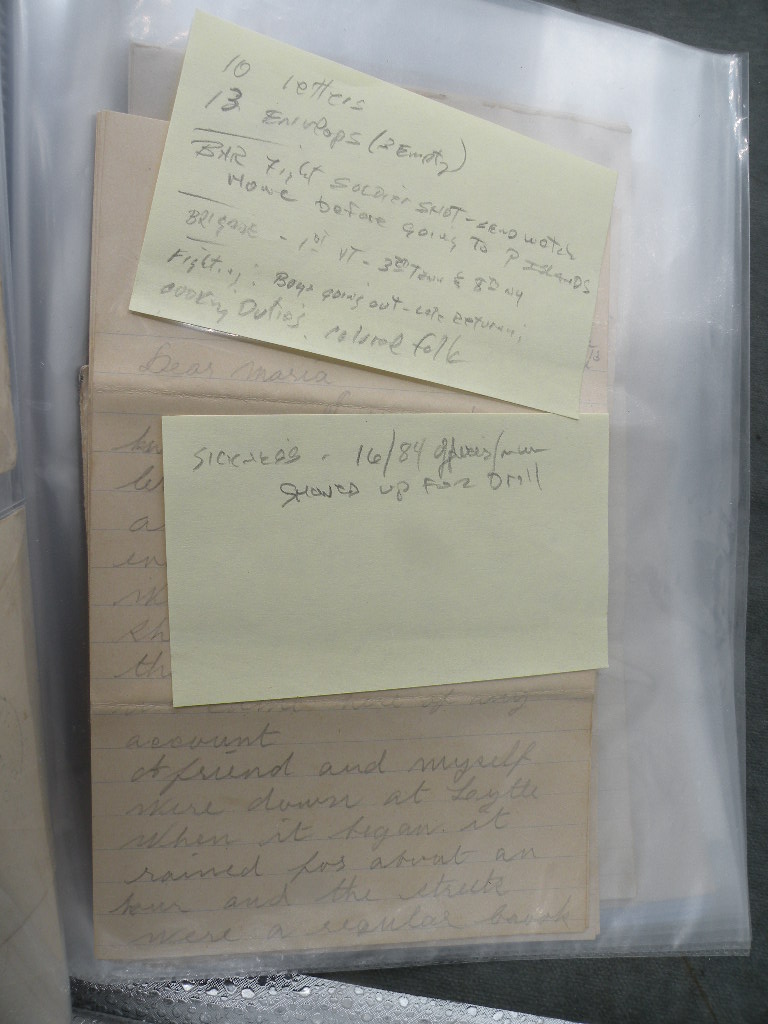 10 letters
13 Envelops (3 Empty)
BAR Fight Soldier SHOT - send watch
Home before going to P Islands
BRIGADE - 1st VT - 3rd Tenn & 8th NY
Fighting: Boys going out - late returning
cooking Duties. colored folk
Dear Maria
SICKNESS - 16/84 officers/men
showed up for Drill
kn
le
a
en
sh
th
of my
account
A friend and myself
were down at Lytle
when it began. it
rained for about an
hour and the streets
were a regular brook